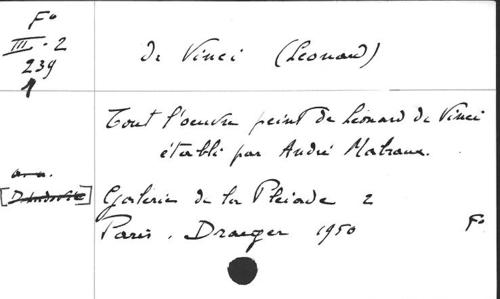 F°
III - 2
239
1
de Vinci (Leonard)
Tout l'oeuvre peint de Léonard de Vinci
établi par André Malraux.
Galerie de la Pleiade 2
Paris. Draeger 1950 F°